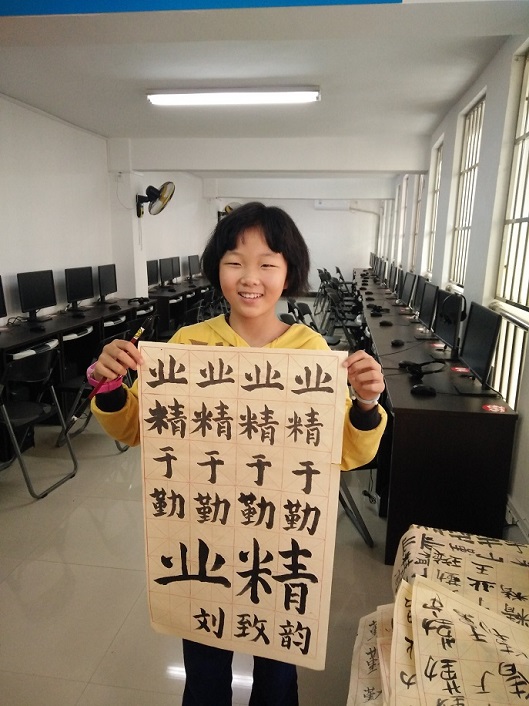 业业业业
精精精精
于于于于
勤勤勤勤
业精
刘致韵